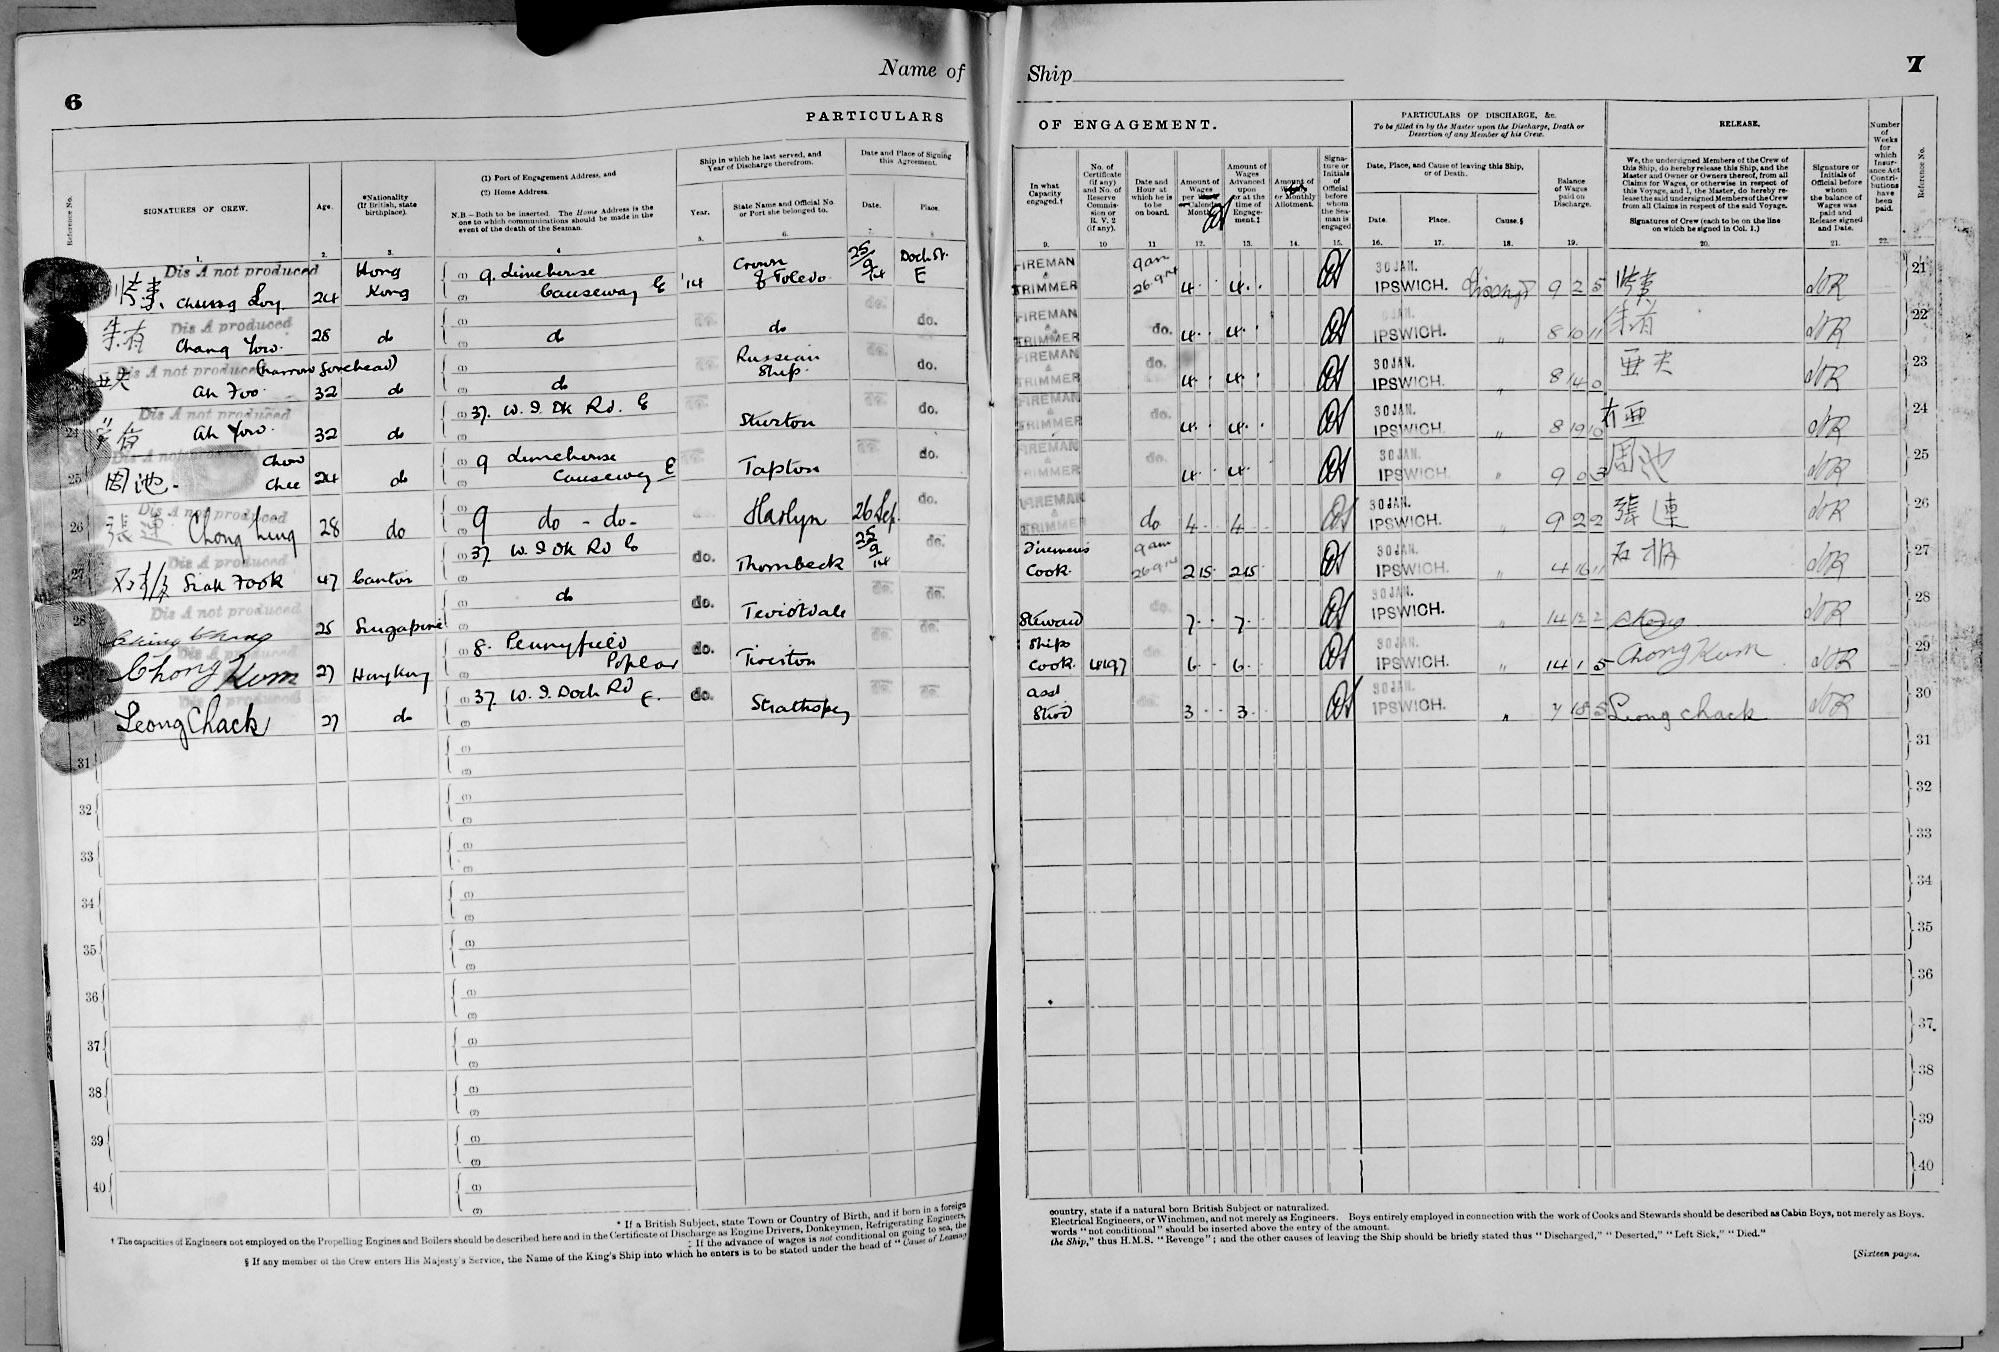 6
Name of
PARTICULARS
Reference No.
SIGNATURES OF CREW.
Age.
*Nationality
(If British, state
birthplace).
(1) Port of Engagement Address, and
(2) Home Address.
N.B.—Both to be inserted. The Home Address is the
one to which communications should be made in the
event of the death of the Seaman.
Ship in which he last served, and
Year of Discharge therefrom.
Year.
State Name and Official No.
or Port she belonged to.
Date and Place of Signing
this Agreement.
Date.
Place.
1. 2. 3. 4 5. 6. 7. 8
Dis A not produced
Cheung Loy 24 Hong Kong (1) 9. Limehouse (2) Causeway E '14 Crown of Toledo 25/9/14 Dock St. E
朱有 Dis A produced
Chang Yow. 28 do (1) (2) do do. do do. do.
亜夫 Dis A not produced (narrow forehead)
Ah Foo. 32 do (1) (2) do Russian Ship. do.
24 Dis A not produced
Ah Yow. 32 do (1) 37. W. I. Dk Rd. E (2) Sturton do.
25 Dis A not produced
周池. Chow Chee 24 do (1) 9 Limehouse (2) Causeway E Tapton do.
26 Dis A not produced
張連 Chong Ling 28 do (1) 9 do - do- (2) Haslyn 26 Sep. do.
27 Dis A produced
Siak Fook 47 Canton (1) 37. W. I. Dk Rd E (2) do. Thornbeck 25/9/14 do.
28 Dis A not produced
25 Singapore (1) do (2) do. Teviotdale do. do.
Dis A produced
Chong Kum 27 Hong Kong (1) 8. Pennyfield (2) Poplar do. Tiverton do. do.
Leong Chack 27 do (1) 37 W. I. Dock Rd E. (2) do. Strathspey do. do.
31 (1) (2)
32 (1) (2)
33 (1) (2)
34 (1) (2)
35 (1) (2)
36 (1) (2)
37 (1) (2)
38 (1) (2)
39 (1) (2)
40 (1) (2)
* If a British Subject, state Town or Country of Birth, and if born in a foreign
† The capacities of Engineers not employed on the Propelling Engines and Boilers should be described here and in the Certificate of Discharge as Engine Drivers, Donkeymen, Refrigerating Engineers,
‡ If the advance of wages is not conditional on going to sea, the
§ If any member of the Crew enters His Majesty's Service, the Name of the King's Ship into which he enters is to be stated under the head of "Cause of Leaving
Ship
7
OF ENGAGEMENT.
PARTICULARS OF DISCHARGE, &c.
To be filled in by the Master upon the Discharge, Death or
Desertion of any Member of his Crew.
RELEASE.
Number
of
Weeks
for
which
Insur-
ance Act
Contri-
butions
have
been
paid.
Reference No.
In what
Capacity
engaged.†
No. of
Certificate
(if any)
and No. of
Reserve
Commis-
sion or
R. V. 2
(if any).
Date and
Hour at
which he is
to be
on board.
Amount of
Wages
per
Calendar
Month
Amount of
Wages
Advanced
upon
or at the
time of
Engage-
ment.‡
Amount of
or Monthly
Allotment.
Signa-
ture or
Initials
of
Official
before
whom
the Sea-
man is
engaged
Date, Place, and Cause of leaving this Ship,
or of Death.
Date. Place. Cause.§
Balance
of Wages
paid on
Discharge.
We, the undersigned Members of the Crew of
this Ship, do hereby release this Ship, and the
Master and Owner or Owners thereof, from all
Claims for Wages, or otherwise in respect of
this Voyage, and I, the Master, do hereby re-
lease the said undersigned Members of the Crew
from all Claims in respect of the said Voyage.
Signatures of Crew (each to be on the line
on which he signed in Col. 1.)
Signature or
Initials of
Official before
whom
the balance of
Wages was
paid and
Release signed
and Date.
9. 10 11 12. 13. 14. 15. 16. 17. 18. 19. 20. 21. 22.
FIREMAN & TRIMMER 9am 26.9.14 4 4 30 JAN. IPSWICH. 9 2 5 21
FIREMAN & TRIMMER do. 4 4 JAN. IPSWICH. " 8 10 11 朱有 22
FIREMAN & TRIMMER do. 4 4 30 JAN. IPSWICH. " 8 14 0 亜夫 23
FIREMAN & TRIMMER do. 4 4 30 JAN. IPSWICH. " 8 19 10 有亜 24
FIREMAN & TRIMMER do. 4 4 30 JAN. IPSWICH " 9 0 3 周池 25
FIREMAN & TRIMMER do 4 4 30 JAN. IPSWICH. " 9 2 2 張連 26
Firemen's Cook. 9am 26 9 14 2 15 2 15 30 JAN. IPSWICH. " 4 16 11 27
Steward do. 7. 7. 30 JAN. IPSWICH. " 14 12 2 28
Ships Cook. 4197 6 6 30 JAN. IPSWICH. " 14 1 5 Chong Kum 29
Asst Stwd do. 3 3 30 JAN. IPSWICH. " 7 18 5 Leong Chack 30
31
32
33
34
35
36
37
38
39
40
country, state if a natural born British Subject or naturalized.
Electrical Engineers, or Winchmen, and not merely as Engineers. Boys entirely employed in connection with the work of Cooks and Stewards should be described as Cabin Boys, not merely as Boys.
words "not conditional" should be inserted above the entry of the amount.
the Ship," thus H.M.S. "Revenge"; and the other causes of leaving the Ship should be briefly stated thus "Discharged," "Deserted," "Left Sick," "Died."
[Sixteen pages.